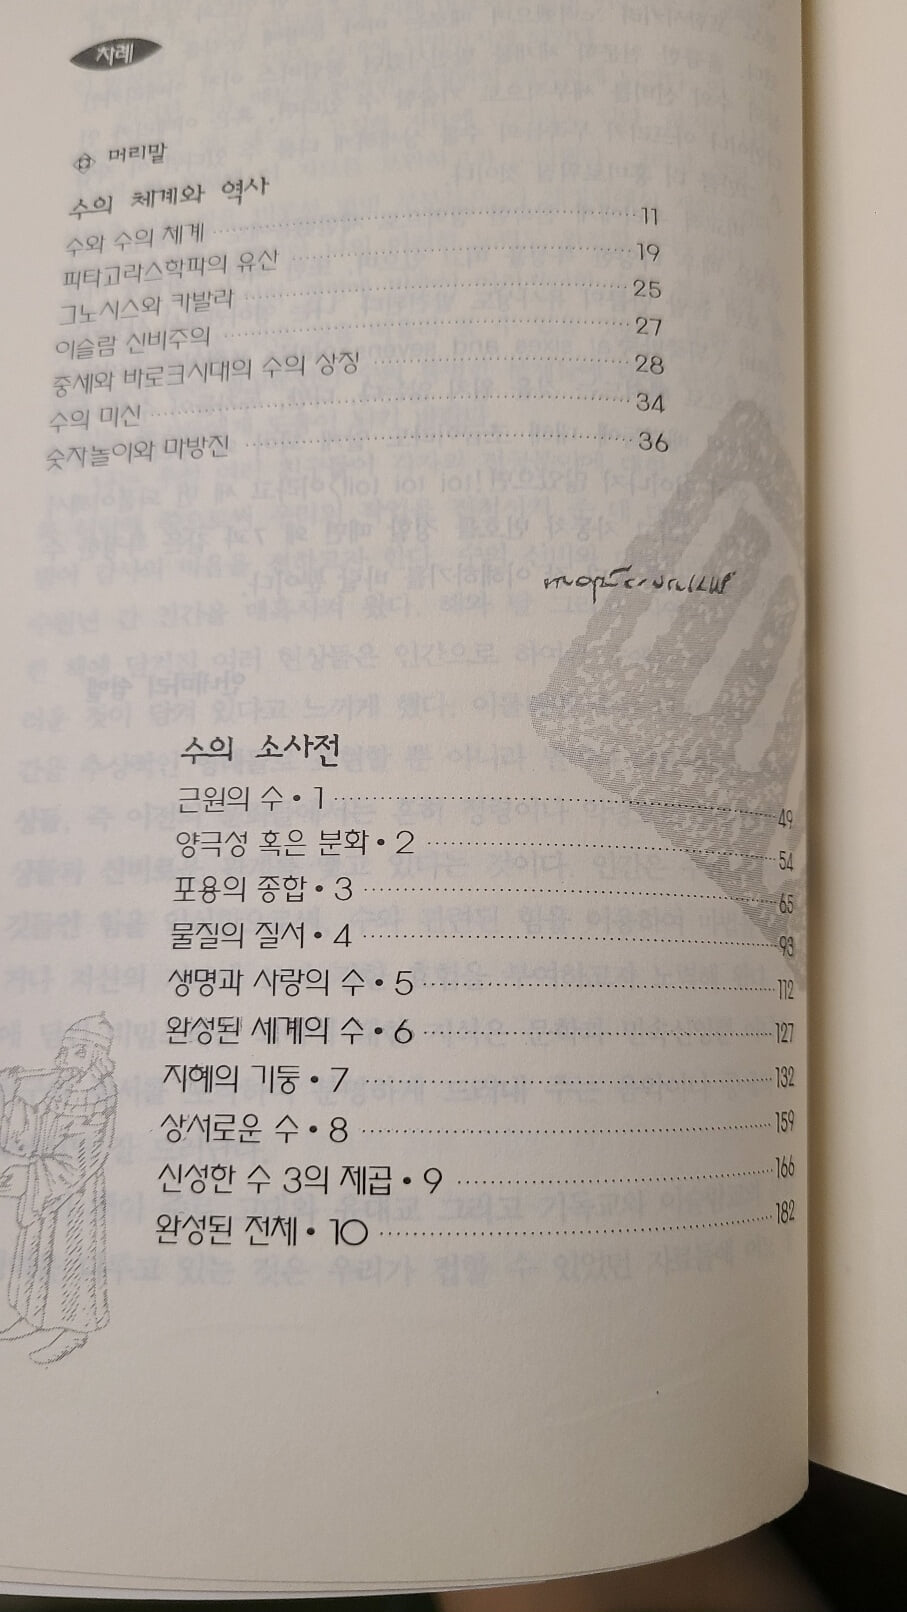 차례
머리말
수의 체계와 역사
수와 수의 체계 11
피타고라스학파의 유산 19
그노시스와 카발라 25
이슬람 신비주의 27
중세와 바로크시대의 수의 상징 28
수의 미신 34
숫자놀이와 마방진 36
수의 소사전
근원의 수 • 1 49
양극성 혹은 분화 • 2 54
포용의 종합 • 3 65
물질의 질서 • 4 93
생명과 사랑의 수 • 5 112
완성된 세계의 수 • 6 127
지혜의 기둥 • 7 132
상서로운 수 • 8 159
신성한 수 3의 제곱 • 9 166
완성된 전체 • 10 182